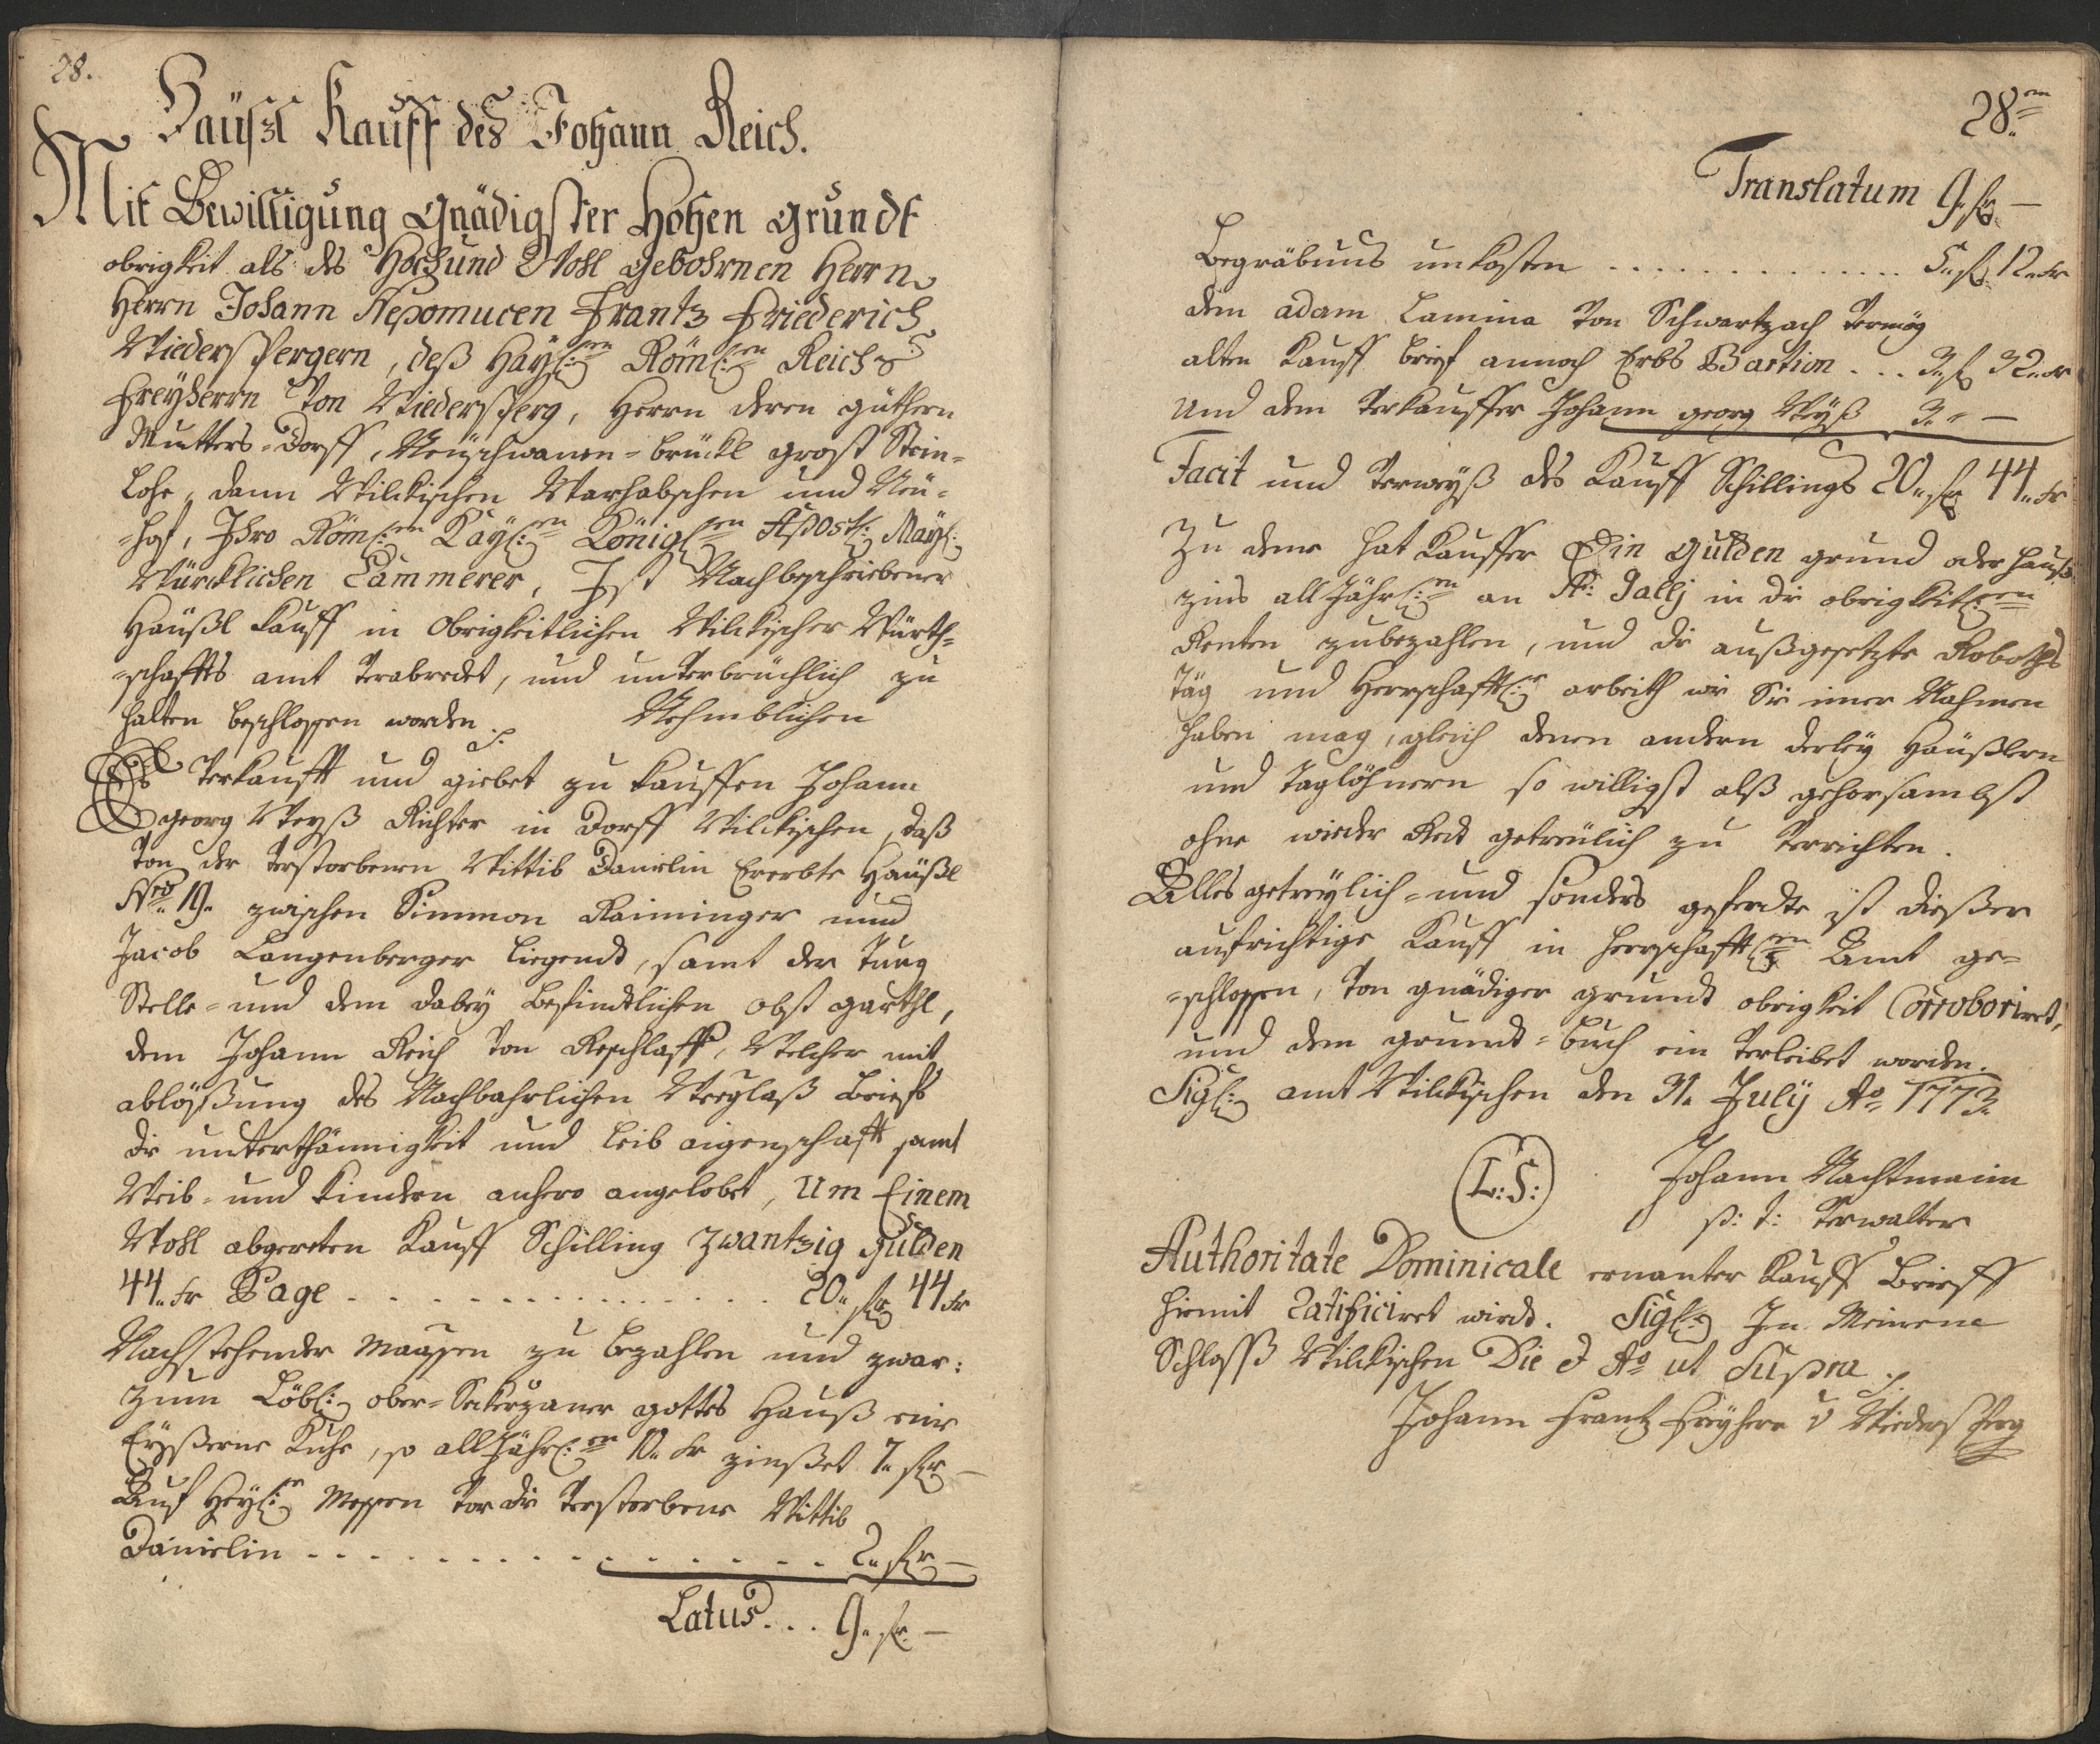 28.
Häüßl Kauff des Johann Reich.
Mit Bewilligung gnädigster Hohen grundt
obrigkeit als des Hoch und Wohl gebohrnen Herrn
Herrn Johann Nepomucen Frantz Friederich
Wiederspergern, deß Hayl:en Röm:en Reichs
Freyherrn von Wiedersperg, Herrn deren güthern
Mutters-dorff, Neüschwanen-brückl groß Stein-
lohe, dann Wilckischen Warhabschen und Neü-
-hof, Ihro Röml:en Kayl:en Königl:en Apost: Mayl:
Würcklichen Cammerer, Ist Nachbeschriebener
Häußl kauff in Obrigkeitlichen Wilckischer Würth-
-schaffts amt verabredet, und unverbrüchlich zu
halten beschlossen worden. Nehmblichen
Es verkaufft und giebet zu kauffen Johann
georg Weyß Richter in Dorff Wilckischen, daß
von der verstorbenen Wittib Danielin Ererbte Häußl
Nro 19. zwischen Simmon Raiminger und
Jacob Langenberger liegendt, samt der Tung
Stelle- und dem dabey befindtlichen obst garthl,
dem Johann Reich von Reschlaff, Welcher mit
ablößung des Nachbahrlichen Weeglaß Briefs
die unterthännigkeit und leib eigenschafft samt
Weib- und kindern anhero angelobet, Um Einem
Wohl abgereten Kauff Schilling Zwantzig gulden
44. kr Sage . . . . . . . . . . 20. fl 44 kr
Nachstehender maassen zu bezahlen und zwar:
zum Löbl: ober-Sekerzaner gottes Hauß eine
Eyßerne Kuhe, so all Jährl:en 10. kr zinßet 7. fl —
Auf Heyl:e Messen vor die verstorbene Wittib
Danielin . . . . . . . . . . 2. fl —
Latus . . . 9. fl. —
28.m
Translatum 9. fl. —
Begräbnus unkosten . . . . . . . . . . 5. fl 12. kr
dem adam Lamina von Schwartzach vermög
alten Kauff brief annoch Erbs Bartion . . . 3. fl 32. kr
Und dem verkauffer Johann georg Weyß 3. " —
Facit und verweyß des Kauff Schillings 20. fl 44. kr
Zu deme hat Kauffer Ein gulden grund oder hauß
zins all Jährl:en an St: Gallj in die obrigkeitl:en
Renten zubezahlen, und die außgesetzte Roboths
Täg und Herrschafftl:e arbeith wie Sie imer Nahmen
haben mag, gleich denen andern derley Häußlern
und taglöhnern so willigst alß gehorsambst
ohne wieder Red getreülich zu verrichten.
Alles getreylich- und sonders geferdte ist dießer
aufrichtige Kauff in herrschafftl:en Amt ge-
-schlossen, von gnädiger grundt obrigkeit Corroboriret,
und dem grundt-buch ein verleibet worden.
Sigl: amt Wilckischen den 31. July Ao 1773.
(L:S:) Johann Nachtmann
p: t: verwalter
Authoritate Dominicale ernanter Kauff Brieff
hiemit Ratificiret wird. Sigl: In Meinem
Schloß Wilckischen Die et Ao ut Supra
Johann Frantz Freyherr v Wiedersperg